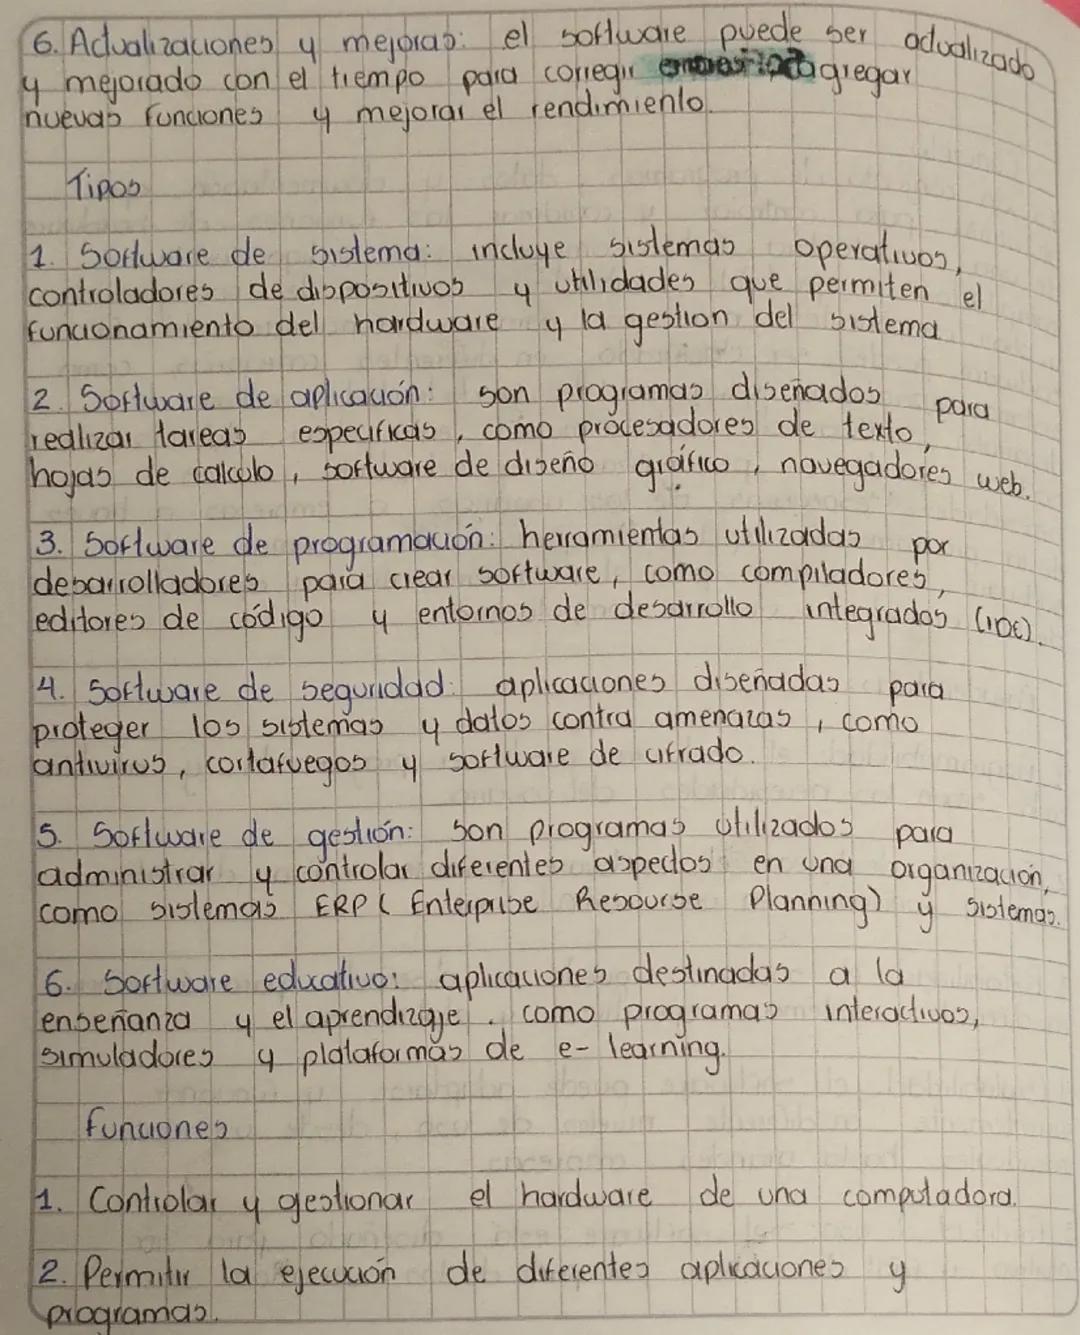 6. Actualizaciones y mejoras: el software puede ser actualizado
y mejorado con el tiempo para corregir agregar
nuevas funciones y mejorar el rendimiento.
Tipos
1. Software de sistema: incluye sistemas operativos,
controladores de dispositivos y utilidades que permiten el
funcionamiento del hardware y la gestion del sistema
2. Software de aplicación: son programas diseñados para
realizar tareas especificas, como procesadores de texto,
hojas de calculo, software de diseño gráfico, navegadores web.
3. Software de programación: herramientas utilizadas por
desarrolladores para crear software, como compiladores,
editores de código y entornos de desarrollo integrados (IDE).
4. Software de seguridad: aplicaciones diseñadas para
proteger los sistemas y datos contra amenazas, como
antivirus, cortafuegos y software de cifrado.
5. Software de gestión: son programas utilizados para
administrar y controlar diferentes aspectos en una organización,
como sistemas ERP (Enterprise Resourse Planning) y sistemas.
6. Software educativo: aplicaciones destinadas a la
enseñanza y el aprendizaje. como programas interactivos,
simuladores y plataformas de e-learning.
funciones
1. Controlar y gestionar el hardware de una computadora.
2. Permitir la ejecución de diferentes aplicaciones y
programas.